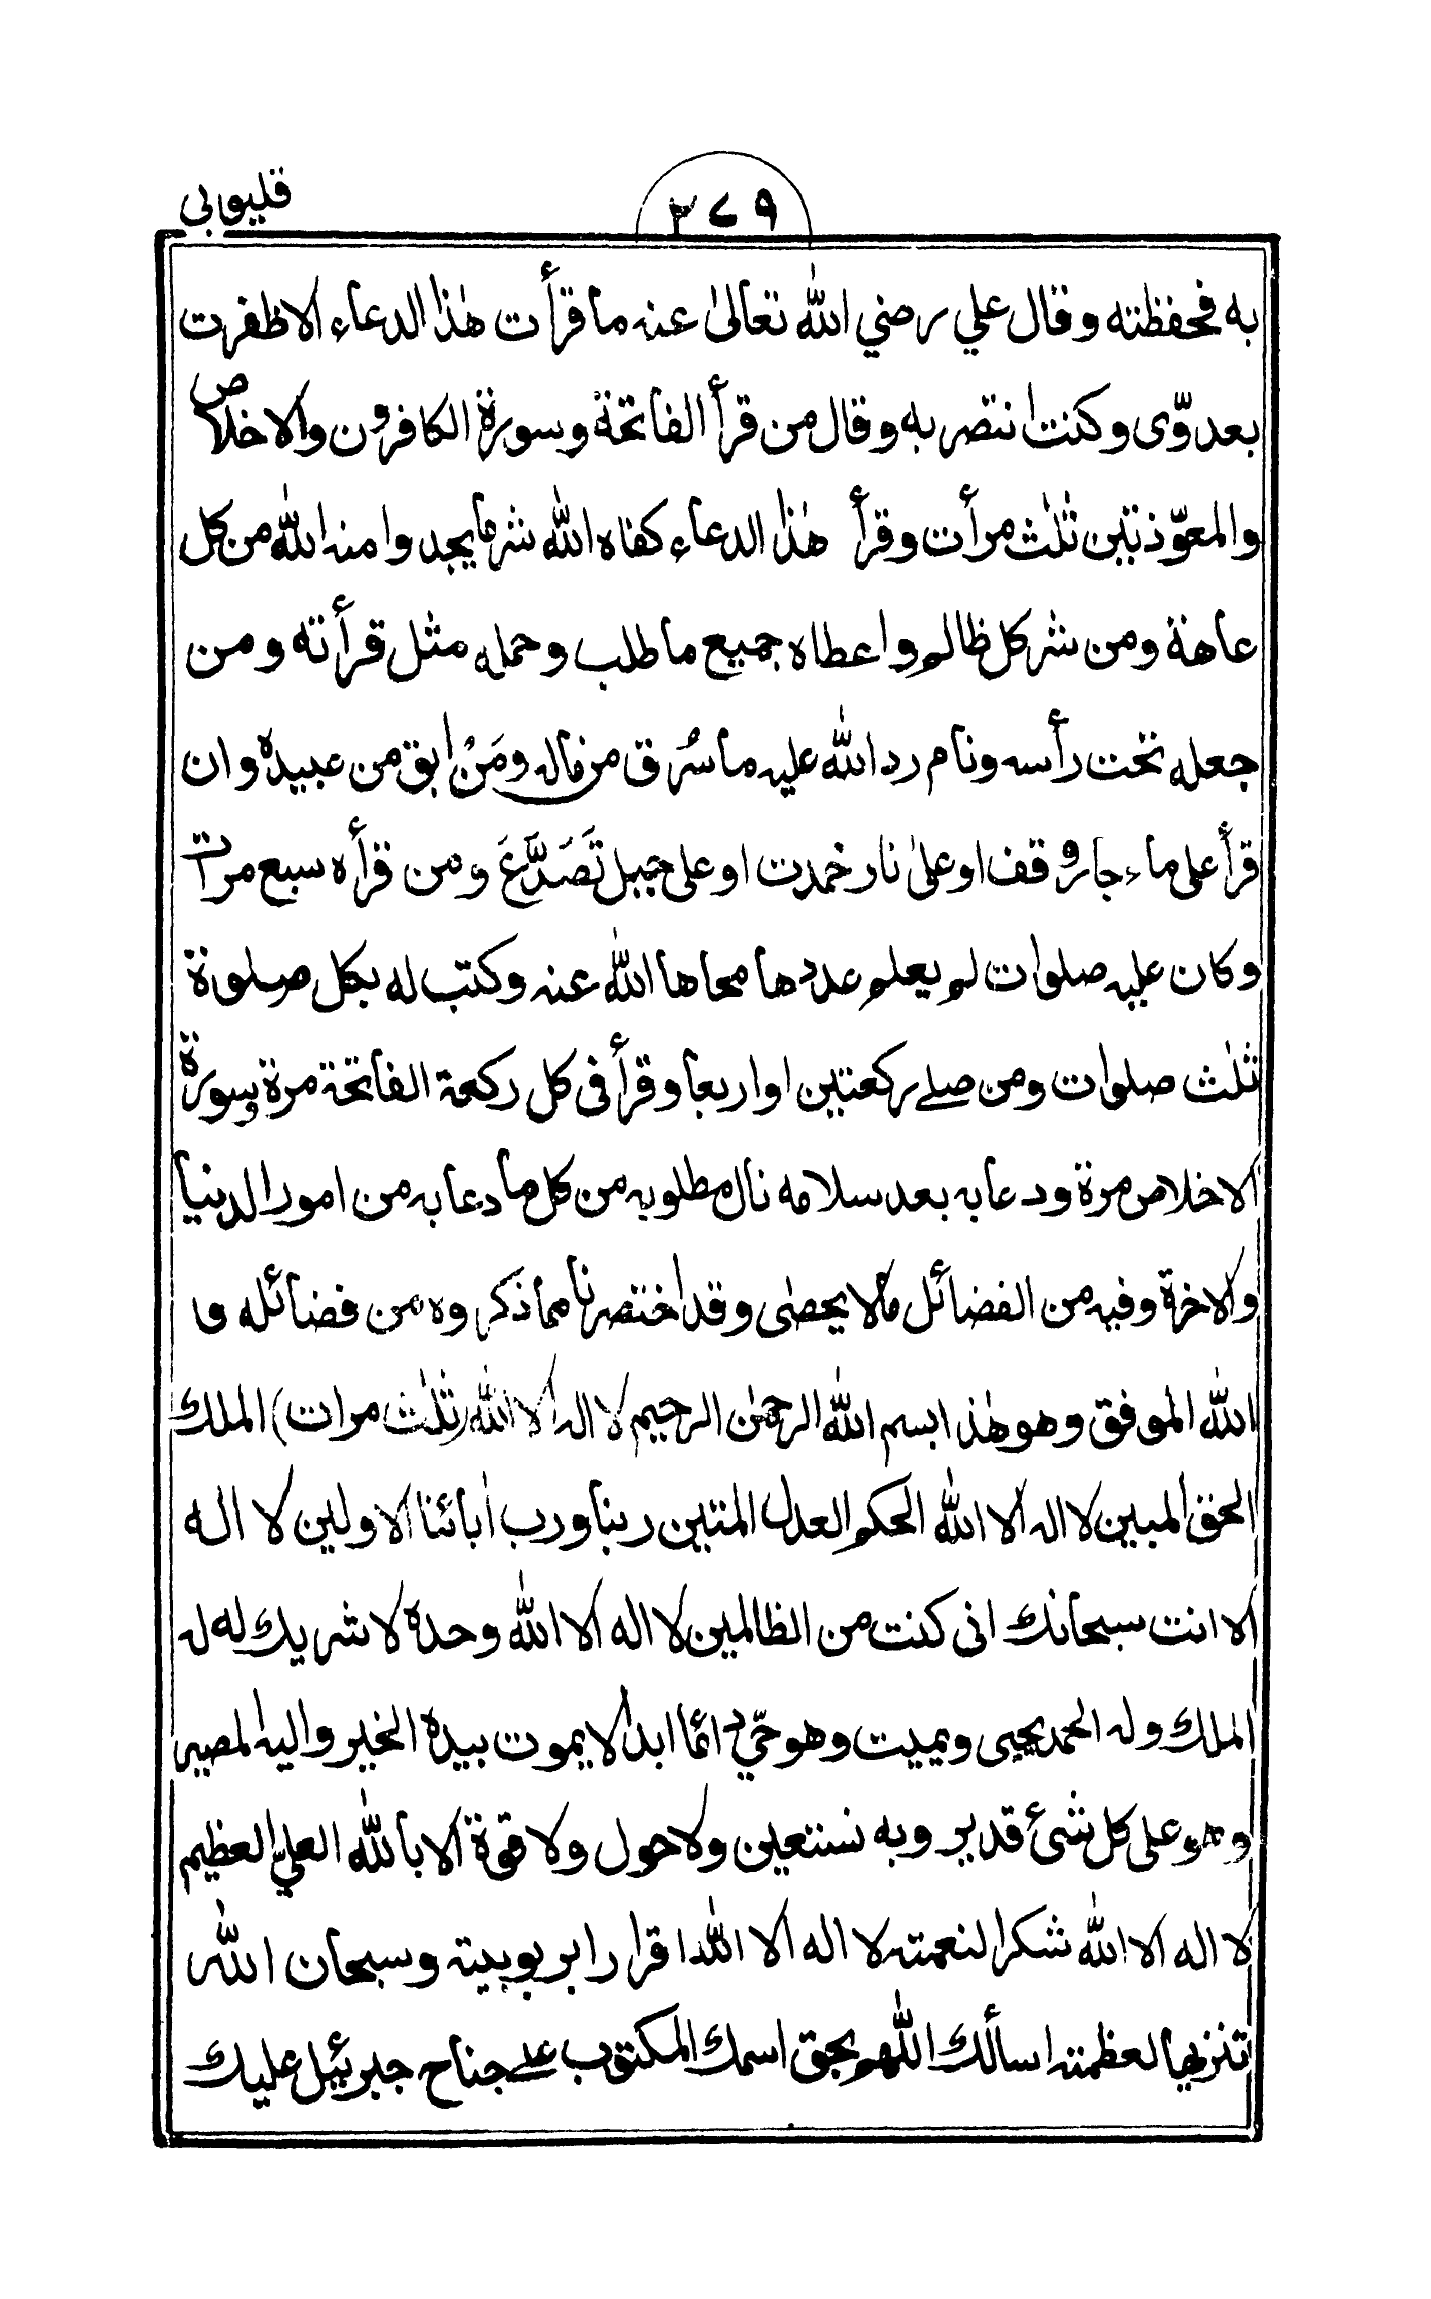 قليوبي
٢٧٩
به فحفظته وقال علي رضي الله تعالىٰ عنه ما قرأت هٰذا الدعاء الا ظفرت
بعدوّى وكنت انتصر به وقال من قرأ الفاتحة وسورة الكافرون والاخلاص
والمعوّذتين ثلٰث مرأت وقرأ هٰذا الدعاء كفاه الله شر ما يجد وامنه الله من كل
عاهة ومن شر كل ظالم واعطاه جميع ما طلب وحمله مثل قرأته ومن
جعله تحت رأسه ونام رد الله عليه ما سُرق من ماله ومَنْ ابق من عبيده وان
قرأ على ماء جار وقف او علىٰ نار خمدت او على جبل تَصَدَّعَ ومن قرأه سبع مرات
وكان عليه صلوات لم يعلم عددها محاها الله عنه وكتب له بكل صلوة
ثلٰث صلوات ومن صلے ركعتين او اربعا وقرأ فى كل ركعة الفاتحة مرة وسورة
الاخلاص مرة ودعا به بعد سلامه نال مطلوبه من كل ما دعا به من امور الدنيا
والاخرة وفيه من الفضائل مالا يحصٰى وقد اختصرنا مما ذكروه من فضائله وا
الله الموفق وهو هٰذا بسم الله الرحمٰن الرحيم لا اله الا الله (ثلٰث مرات) الملك
الحق المبين لا اله الا الله الحكم العدل المتين ربنا ورب اٰبائنا الاولين لا اله
الا انت سبحانك انى كنت من الظالمين لا اله الا الله وحده لا شريك له له
الملك وله الحمد يحيى ويميت وهو حيّ دائما ابدا لا يموت بيده الخير واليه المصير
وهو على كل شئ قدير وبه نستعين ولا حول ولا قوة الا بالله العلي العظيم
لا اله الا الله شكرا لنعمته لا اله الا الله اقرارا بربوبيته وسبحان الله
تنزيها لعظمته اسألك اللهم بحق اسمك المكتوب علے جناح جبرئيل عليك